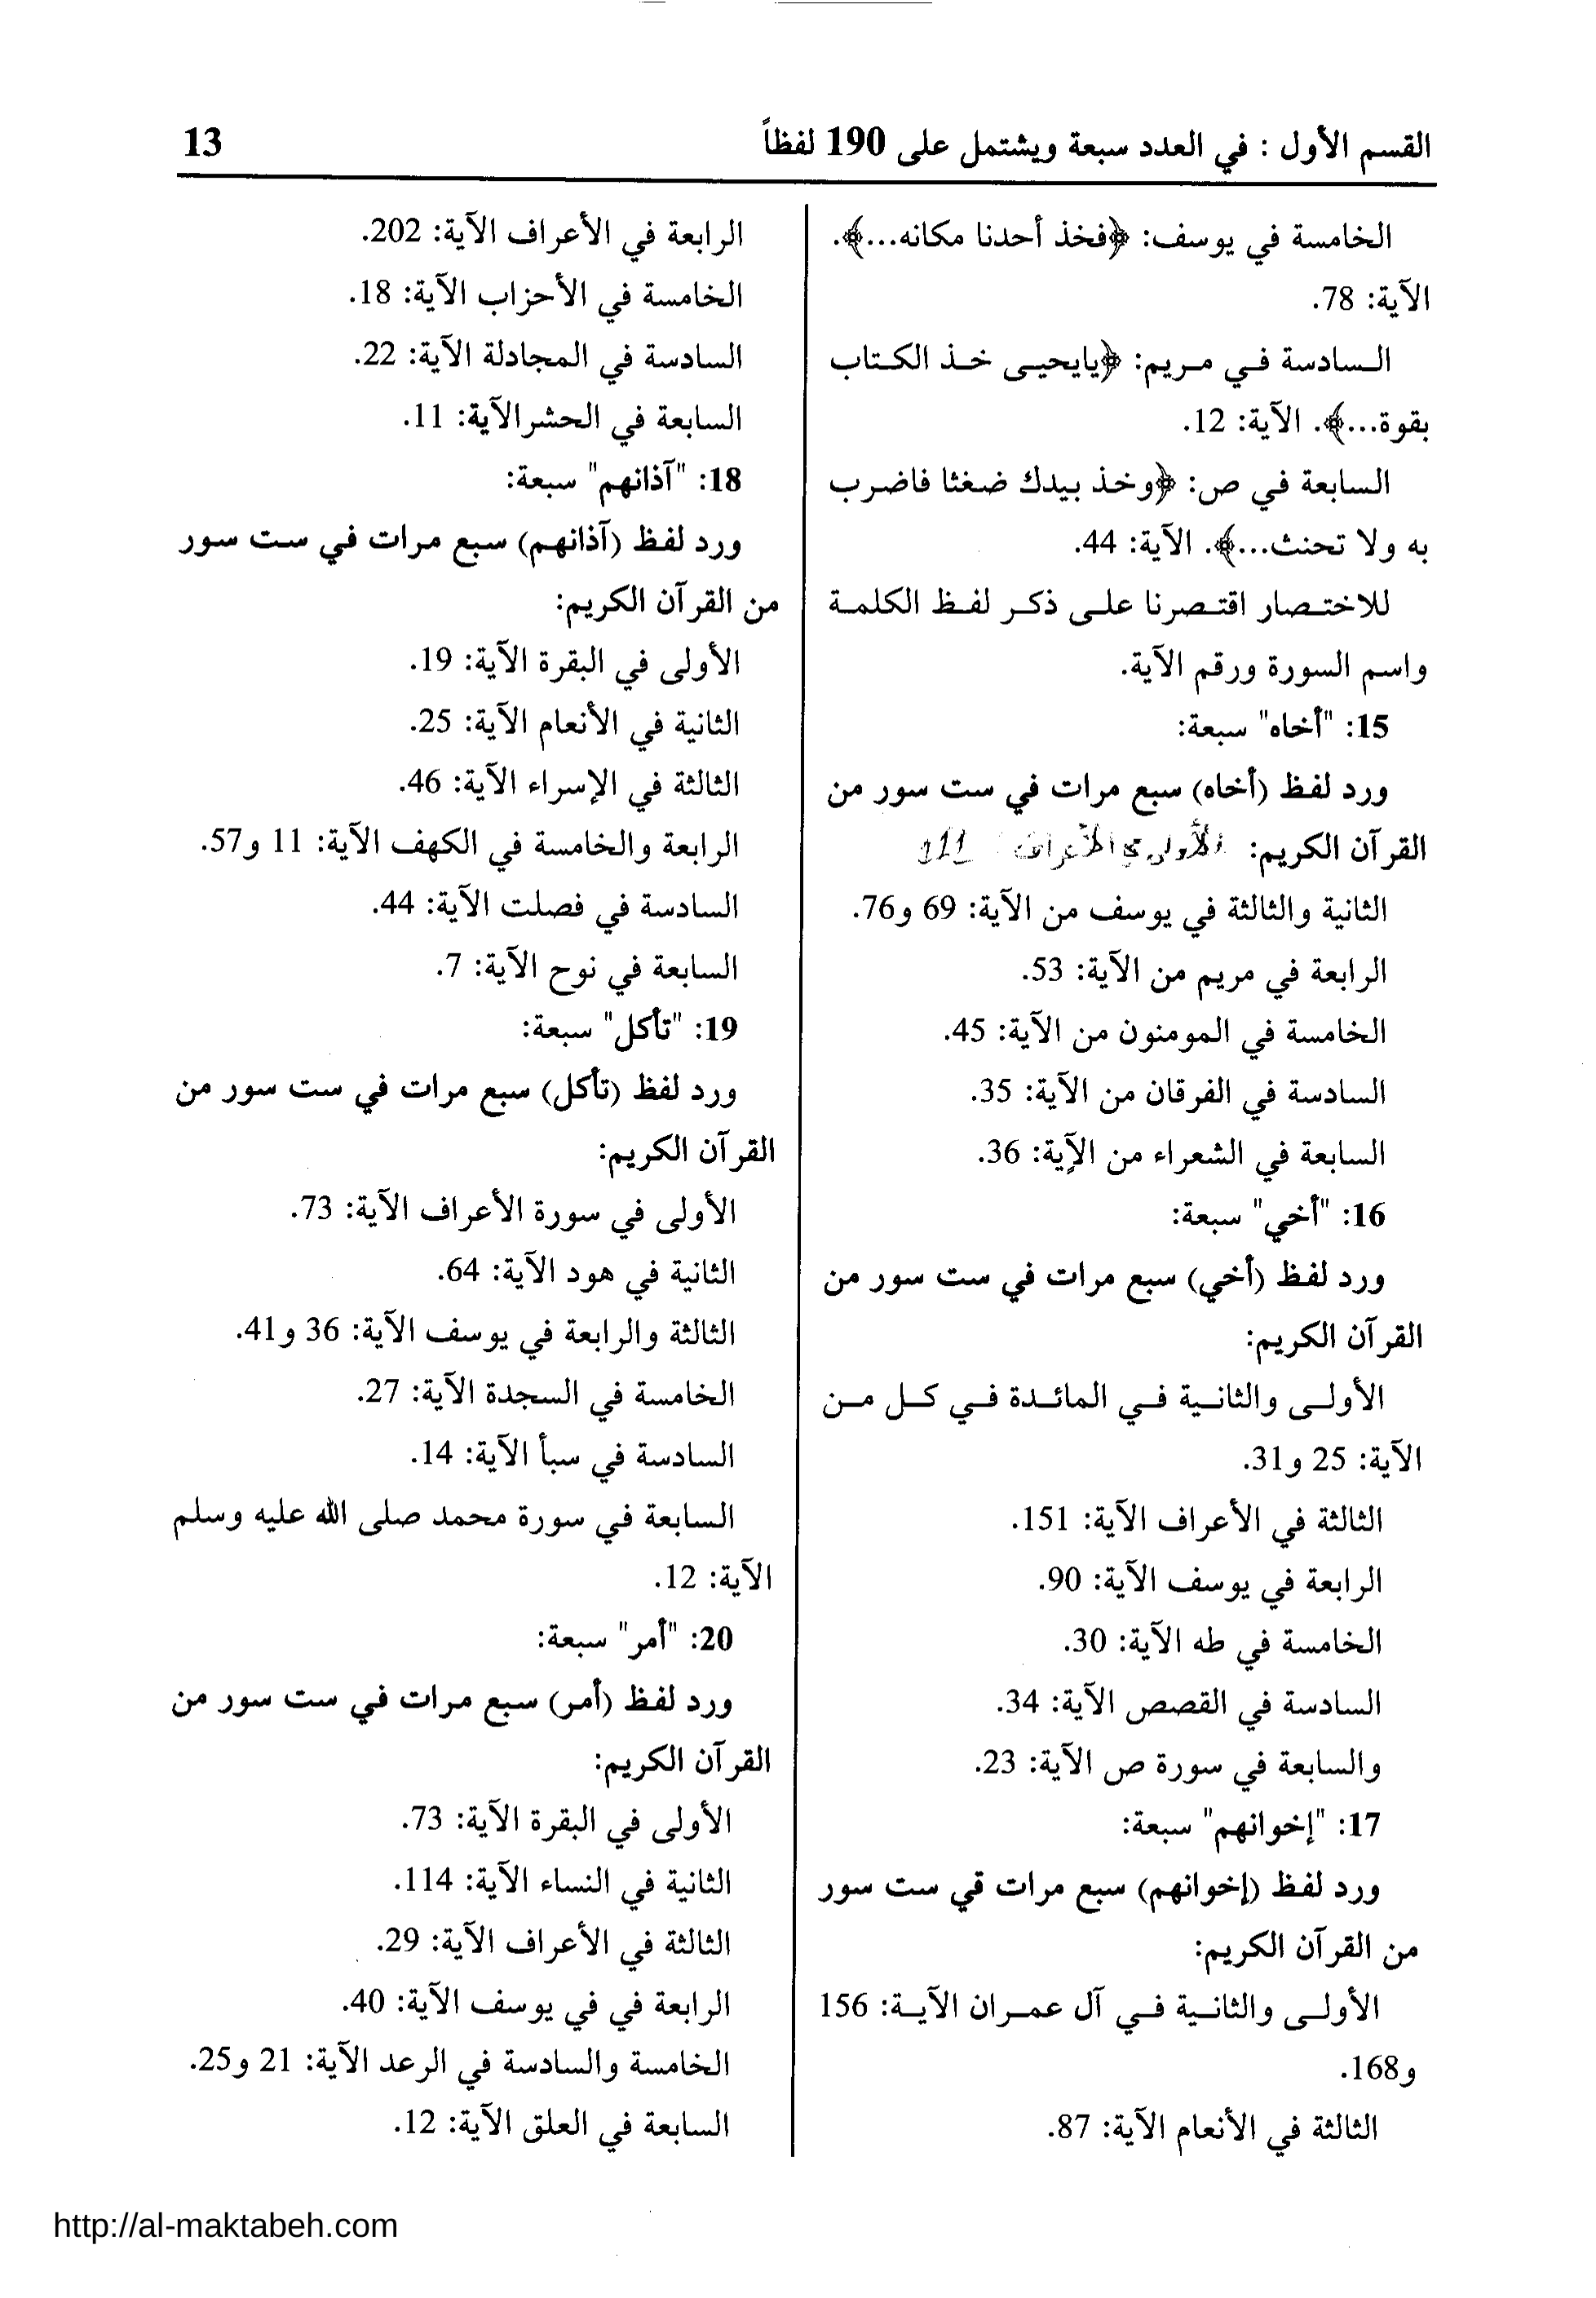 القسم الأول : في العدد سبعة ويشتمل على 190 لفظاً
13
الخامسة في يوسف: ﴿فخذ أحدنا مكانه...﴾.
الآية: 78.
السادسة في مريم: ﴿يايحيى خذ الكتاب
بقوة...﴾. الآية: 12.
السابعة في ص: ﴿وخذ بيدك ضغثا فاضرب
به ولا تحنث...﴾. الآية: 44.
للاختصار اقتصرنا على ذكر لفظ الكلمة
واسم السورة ورقم الآية.
15: "أخاه" سبعة:
ورد لفظ (أخاه) سبع مرات في ست سور من
القرآن الكريم: الأولى في الأعراف 111
الثانية والثالثة في يوسف من الآية: 69 و76.
الرابعة في مريم من الآية: 53.
الخامسة في المومنون من الآية: 45.
السادسة في الفرقان من الآية: 35.
السابعة في الشعراء من الآية: 36.
16: "أخي" سبعة:
ورد لفظ (أخي) سبع مرات في ست سور من
القرآن الكريم:
الأولى والثانية في المائدة في كل من
الآية: 25 و31.
الثالثة في الأعراف الآية: 151.
الرابعة في يوسف الآية: 90.
الخامسة في طه الآية: 30.
السادسة في القصص الآية: 34.
والسابعة في سورة ص الآية: 23.
17: "إخوانهم" سبعة:
ورد لفظ (إخوانهم) سبع مرات قي ست سور
من القرآن الكريم:
الأولى والثانية في آل عمران الآية: 156
و168.
الثالثة في الأنعام الآية: 87.
الرابعة في الأعراف الآية: 202.
الخامسة في الأحزاب الآية: 18.
السادسة في المجادلة الآية: 22.
السابعة في الحشرالآية: 11.
18: "آذانهم" سبعة:
ورد لفظ (آذانهم) سبع مرات في ست سور
من القرآن الكريم:
الأولى في البقرة الآية: 19.
الثانية في الأنعام الآية: 25.
الثالثة في الإسراء الآية: 46.
الرابعة والخامسة في الكهف الآية: 11 و57.
السادسة في فصلت الآية: 44.
السابعة في نوح الآية: 7.
19: "تأكل" سبعة:
ورد لفظ (تأكل) سبع مرات في ست سور من
القرآن الكريم:
الأولى في سورة الأعراف الآية: 73.
الثانية في هود الآية: 64.
الثالثة والرابعة في يوسف الآية: 36 و41.
الخامسة في السجدة الآية: 27.
السادسة في سبأ الآية: 14.
السابعة في سورة محمد صلى الله عليه وسلم
الآية: 12.
20: "أمر" سبعة:
ورد لفظ (أمر) سبع مرات في ست سور من
القرآن الكريم:
الأولى في البقرة الآية: 73.
الثانية في النساء الآية: 114.
الثالثة في الأعراف الآية: 29.
الرابعة في في يوسف الآية: 40.
الخامسة والسادسة في الرعد الآية: 21 و25.
السابعة في العلق الآية: 12.
http://al-maktabeh.com